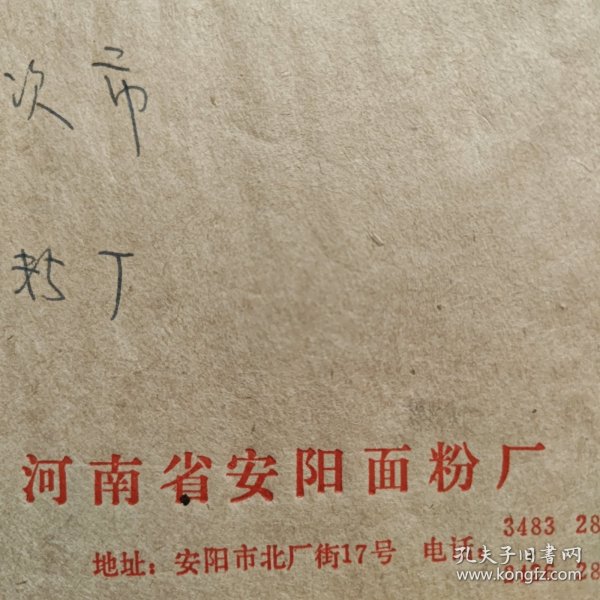 次市
粉厂
河南省安阳面粉厂
地址：安阳市北厂街17号 电话：3483 28
孔夫子旧书网
www.kongfz.com